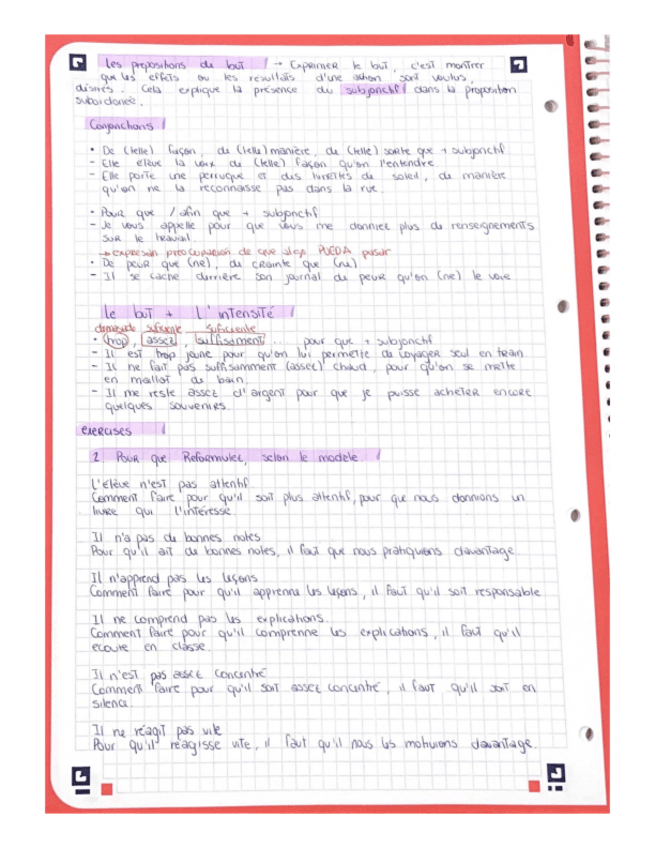 Les propositions du but → Exprimer le but, c'est montrer
que les effets ou les résultats d'une action sont voulus,
désirés. Cela explique la présence du subjonctif dans la proposition
subordonée.
Conjonctions
• De (telle) façon, de (telle) manière, de (telle) sorte que + subjonctif
- Elle élève la voix de (telle) façon qu'on l'entendre
- Elle porte une perruque et des lunettes de soleil, de manière
qu'on ne la reconnaisse pas dans la rue.
• Pour que / afin que + subjonctif
- Je vous appelle pour que vous me donniez plus de renseignements
sur le travail.
→ expresión preocupación de que algo PUEDA pasar
• De peur que (ne), de crainte que (ne)
- Il se cache derrière son journal de peur qu'on (ne) le voie
le but + l'intensité
demasiado suficiente suficiente
• trop, assez, suffisament ... pour que + subjonctif
- Il est trop jeune pour qu'on lui permette de voyager seul en train
- Il ne fait pas suffisamment (assez) chaud, pour qu'on se mette
en maillot de bain.
- Il me reste assez d'argent pour que je puisse acheter encore
quelques souvenirs.
exercises
2. Pour que Reformulez, selon le modèle.
L'élève n'est pas attentif.
Comment faire pour qu'il soit plus attentif, pour que nous donnions un
livre qui l'intéresse.
Il n'a pas de bonnes notes
Pour qu'il ait de bonnes notes, il faut que nous pratiquions davantage.
Il n'apprend pas les leçons
Comment faire pour qu'il apprenne les leçons, il faut qu'il soit responsable
Il ne comprend pas les explications.
Comment faire pour qu'il comprenne les explications, il faut qu'il
ecoute en classe.
Il n'est pas assez concentré
Comment faire pour qu'il soit assez concentré, il faut qu'il soit en
silence.
Il ne réagit pas vite
Pour qu'il réagisse vite, il faut qu'il nous les motivions davantage.